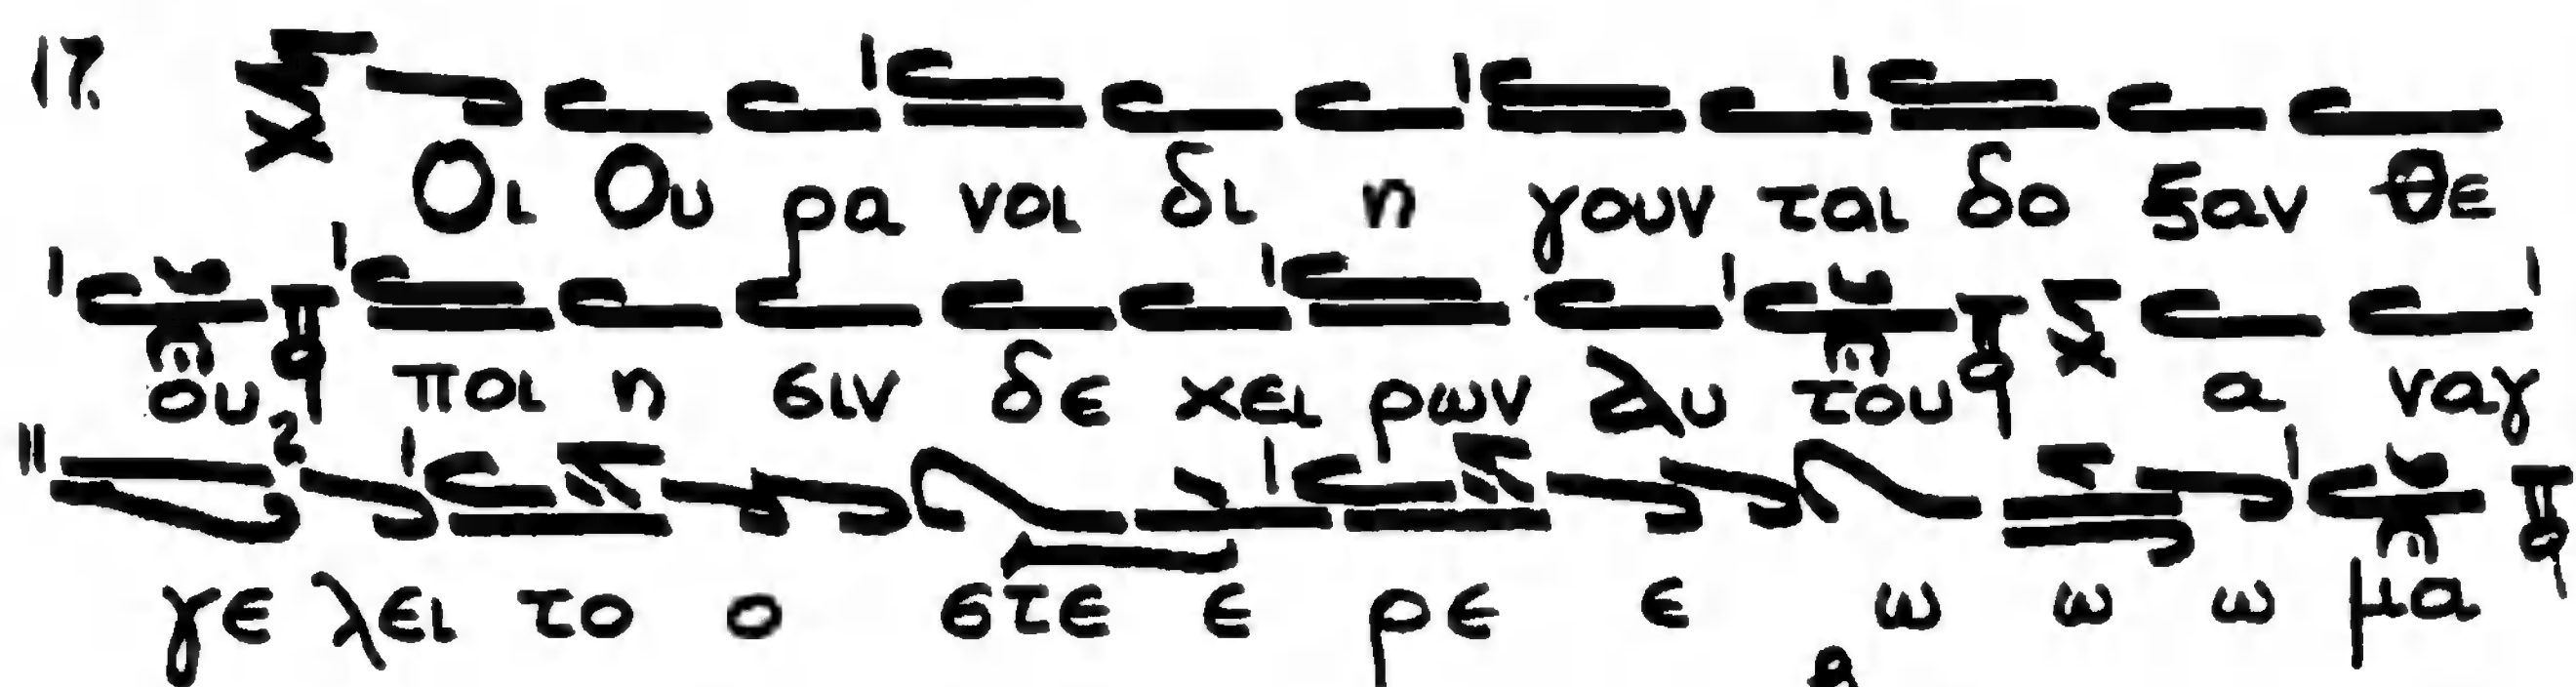 17. Οι Ου ρα νοι δι η γουν ται δο ξαν θε
ου ποι η σιν δε χει ρων αυ του α ναγ
γε λει το ο στε ε ρε ε ω ω ω μα